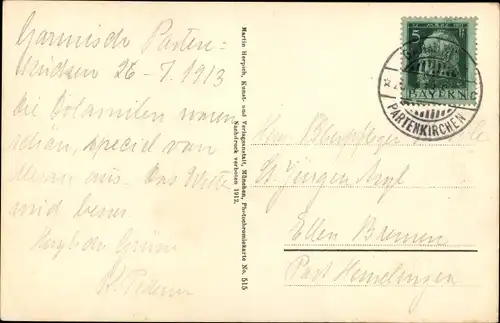 Garmisch Parten-
kirchen 26-7.1913
Die Dolomiten waren
schön, speciel von
Meran aus. Das Wetter
wird besser
Herzliche Grüsse
Martin Herpich, Kunst- und Verlagsanstalt, München, Photochromiekarte No. 515
Nachdruck verboten 1912.
5
BAYERN
PARTENKIRCHEN
Herrn Oberpfleger
St. Jürgen Asyl
Ellen Bremen
Post Hemelingen